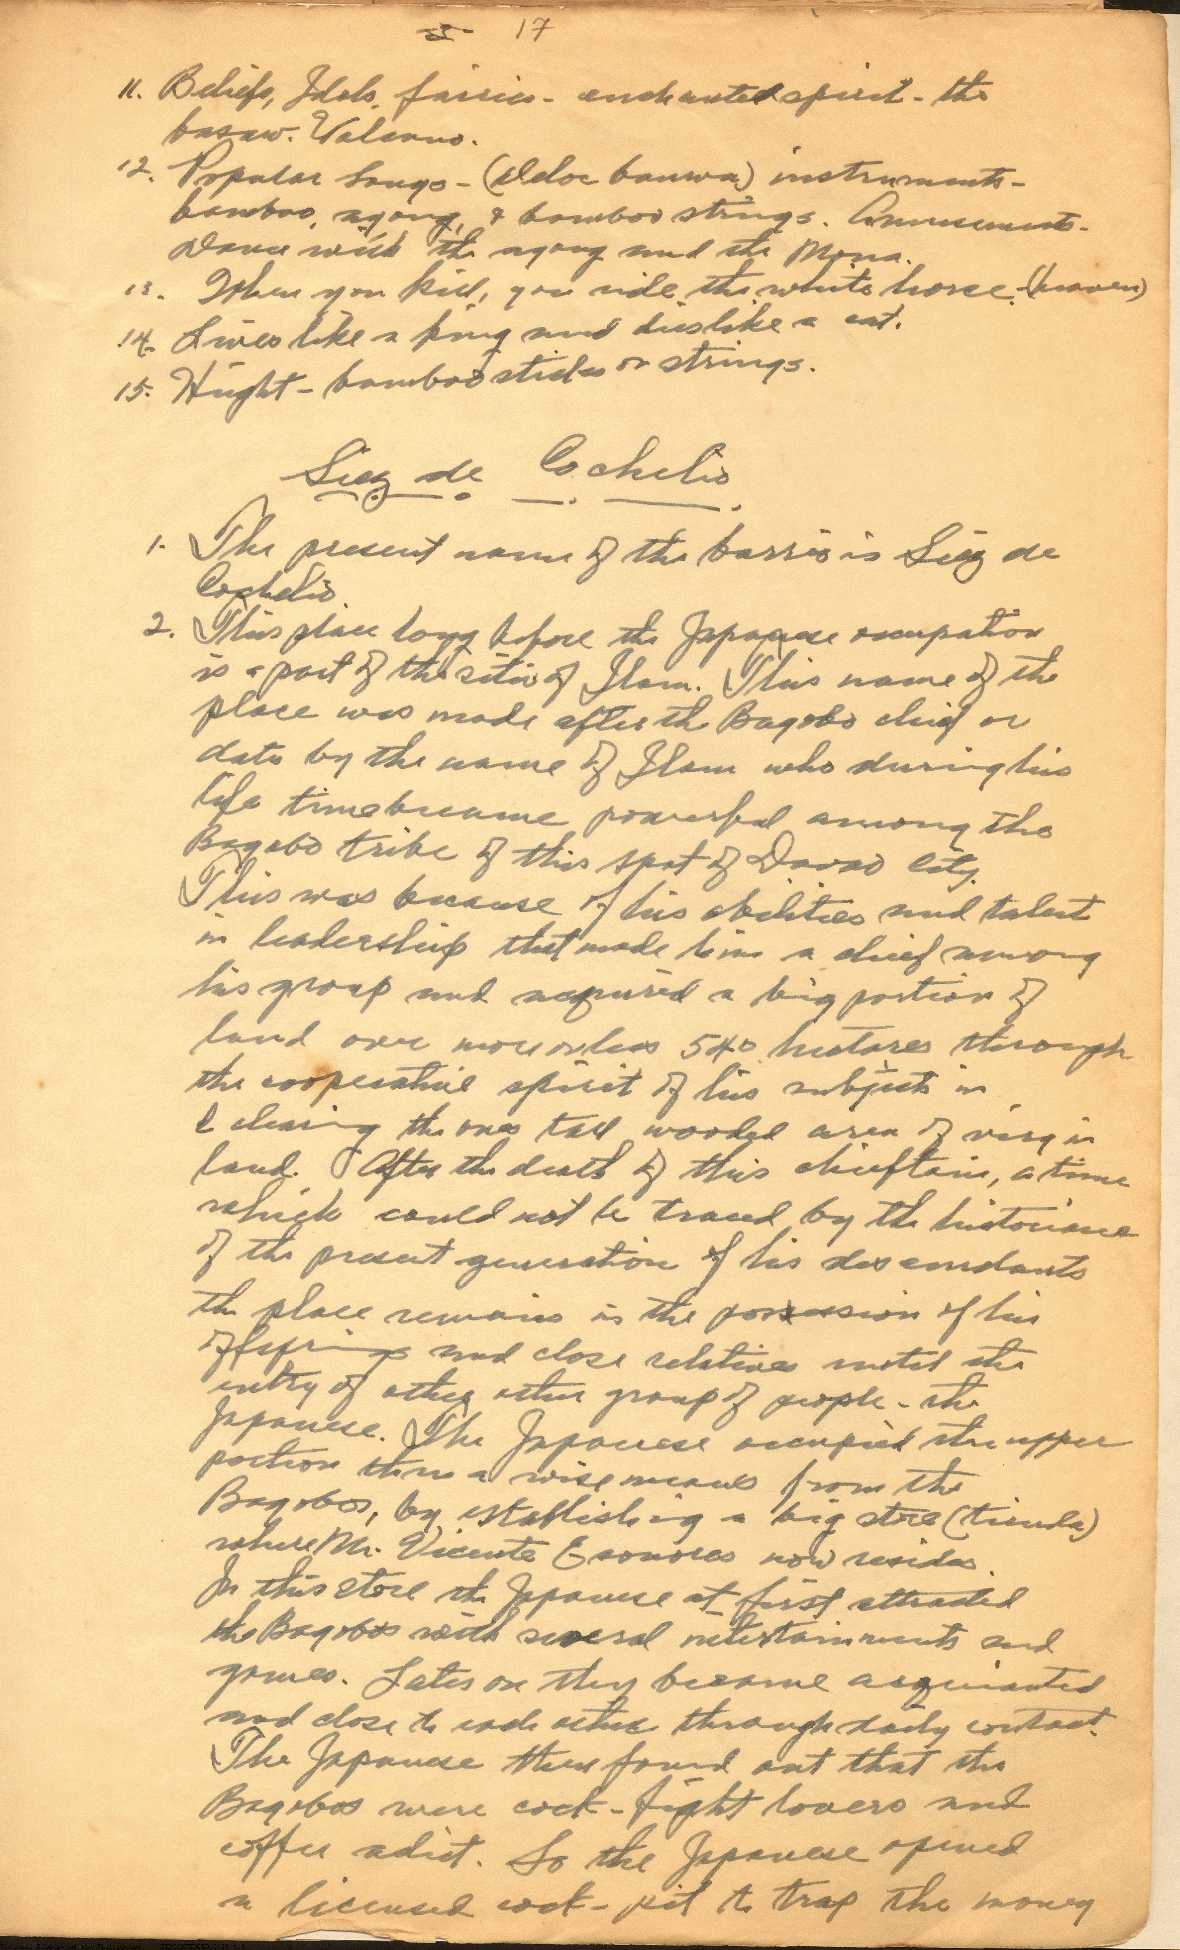 17
11. Beliefs, Idols, fairies - enchanted spirit - the
basaw. Volcano.
12. Popular Songs - ( banwa) instruments -
bamboo, agong, & bamboo strings. Amusements -
Dance with the agong and the Mona.
13. When you kill, you ride the white horse. (heaven)
14. Lives like a king and dislike a cat.
15. Hight - bamboo sticks or strings.
de Cochelio
1. The present name of the barrio is de
Cochelio
2. This place long before the Japanese occupation
is a part of the sitio of Ilam. This name of the
place was made after the Bagobo chief or
dato by the name of Ilam who during his
life time became powerful among the
Bagobo tribe of this spot of Davao City.
This was because of his abilities and talent
in leadership that made him a chief among
his group and acquired a big portion of
land over more or less 540 hectares through
the cooperative spirit of his subjects in
clearing the once tall wooded area of virgin
land. After the death of this chieftain, a time
which could not be traced by the historians
of the present generation of his descendants
the place remains in the possession of his
offsprings and close relatives until the
entry of other group of people - the
Japanese. The Japanese occupied the upper
portion thru a wise means from the
Bagobos, by establishing a big store (tienda)
where Mr. Vicente now resides.
In this store the Japanese at first attracted
the Bagobos with several entertainments and
games. Later on they became acquainted
and close to each other through daily contact.
The Japanese then found out that the
Bagobos were cock-fight lovers and
coffee adict. So the Japanese opened
a licensed cock-pit to trap the money